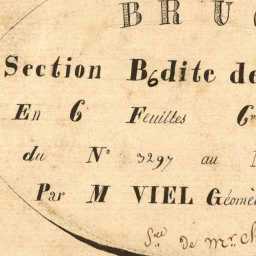 BRU
Section B dite de
En 6 Feuilles
du N° 3297 au
Par M VIEL Géomè
de Mr. Ch